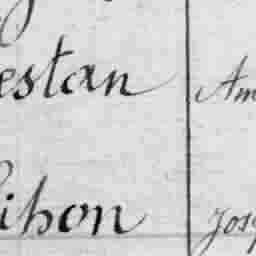 estan Am
ihon Jos